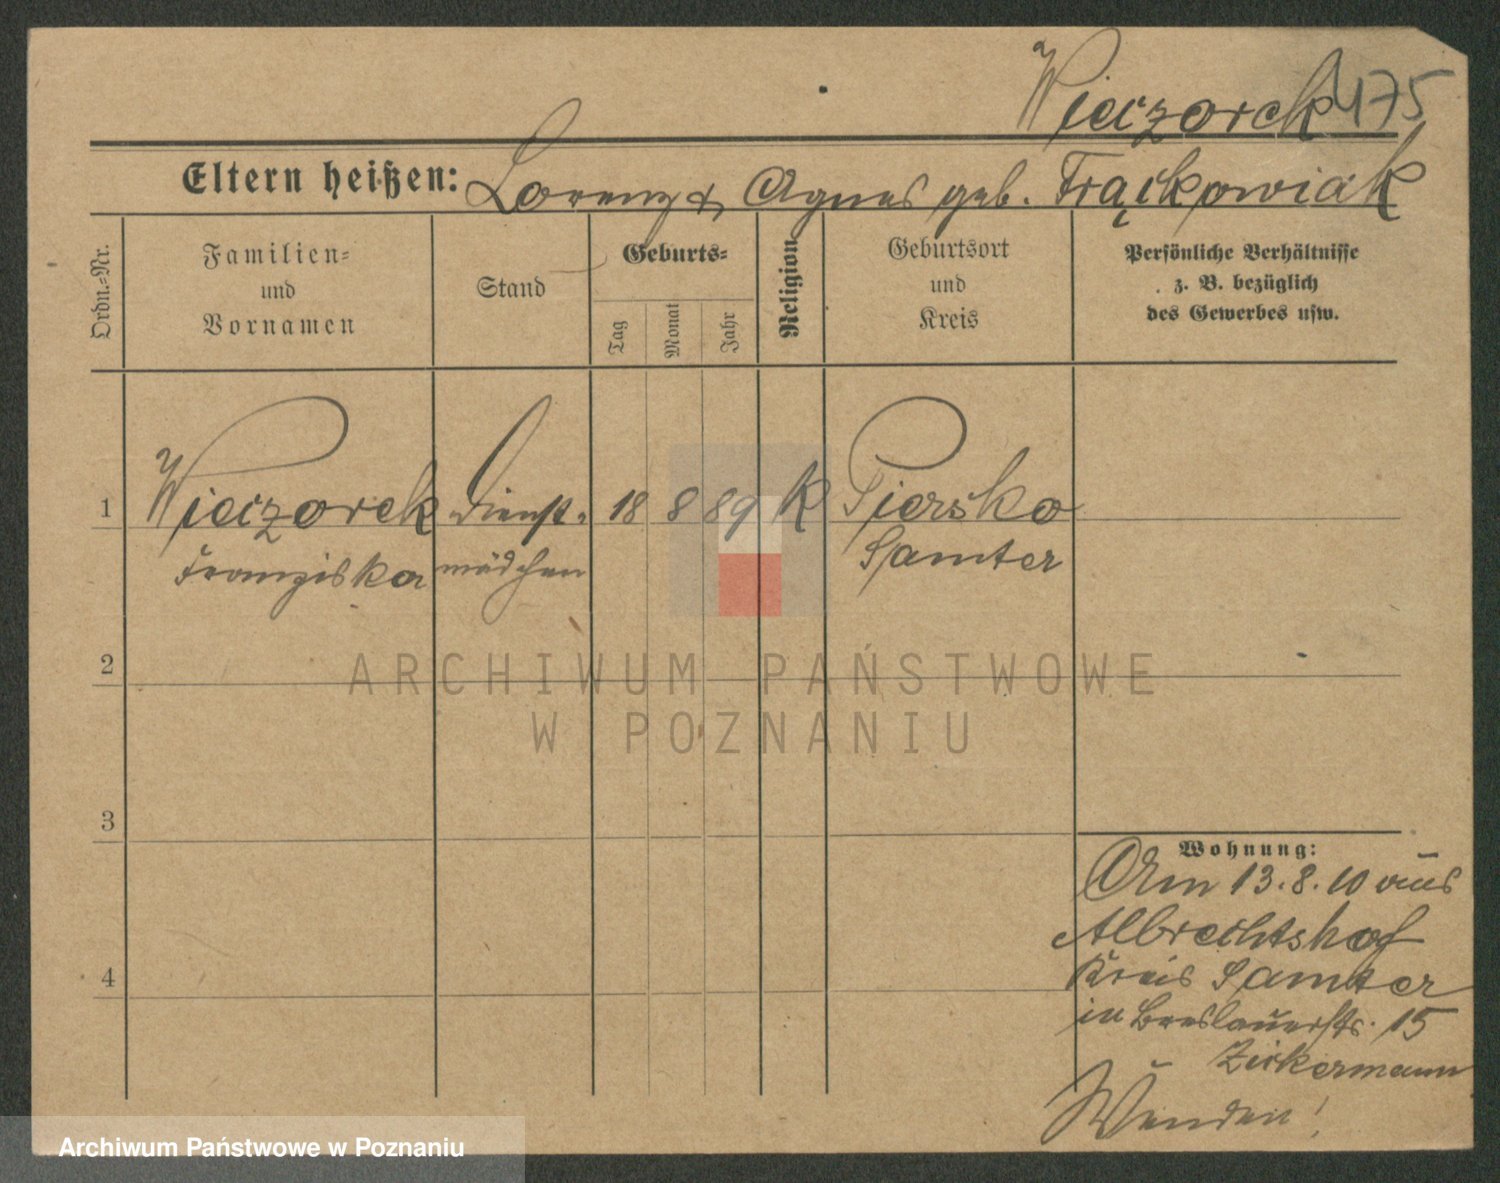 Wieczorek 4175
Eltern heißen: Lorenz & Agnes geb. Frąckowiak
Ordn.=Nr.
Familien=
und
Vornamen
Stand
Geburts=
Tag
Monat
Jahr
Religion
Geburtsort
und
Kreis
Persönliche Verhältnisse
z. B. bezüglich
des Gewerbes usw.
1 Wieczorek Dienst= 18 8 89 K Piersko
Franziska mädchen Samter
2
ARCHIWUM PAŃSTWOWE
W POZNANIU
3
Wohnung:
Am 13.8.10 aus
Albrechtshof
4
Kreis Samter
in Breslauerstr. 15
Zickermann
Wenden!
Archiwum Państwowe w Poznaniu